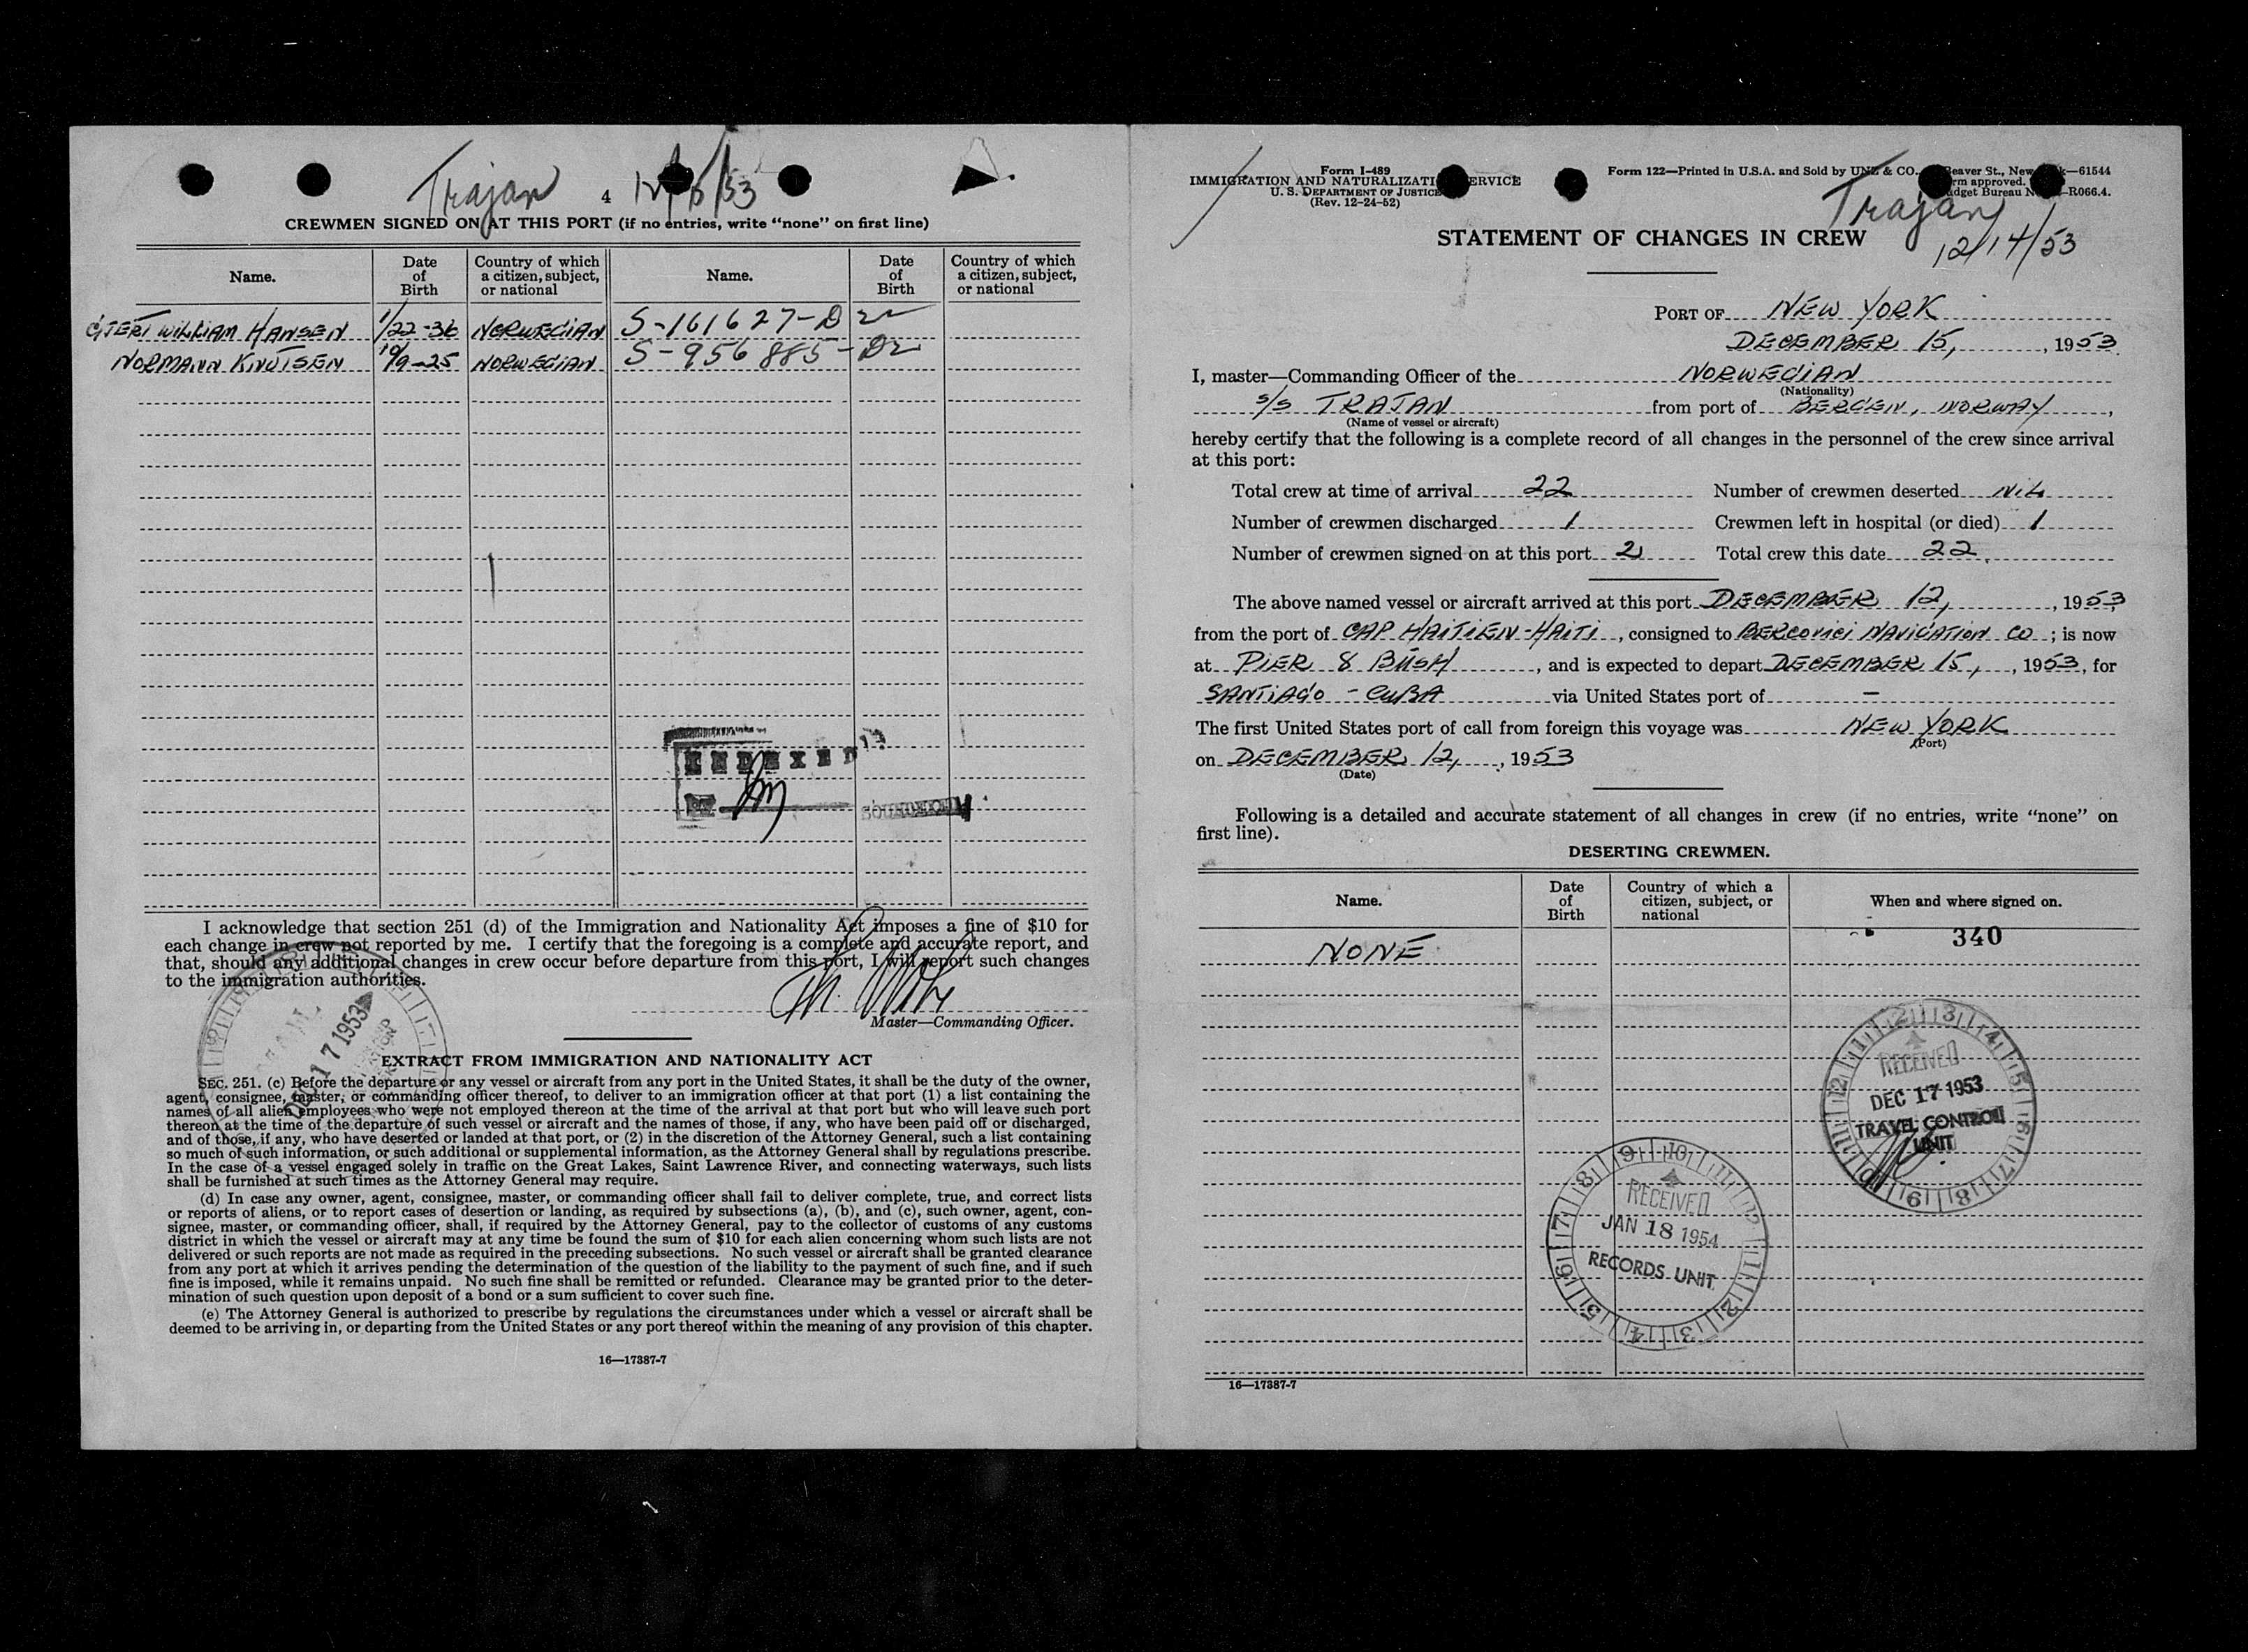 Trajan 4 12/15/53
CREWMEN SIGNED ON AT THIS PORT (if no entries, write “none” on first line)
Name. Date of Birth Country of which a citizen, subject, or national Name. Date of Birth Country of which a citizen, subject, or national
GJERT WILLIAM HANSEN 1/22-36 NORWEGIAN S-161627-D2
NORMANN KNUTSEN 10/9-25 NORWEGIAN S-956885-D2
INDEXED
BY
I acknowledge that section 251 (d) of the Immigration and Nationality Act imposes a fine of $10 for
each change in crew not reported by me. I certify that the foregoing is a complete and accurate report, and
that, should any additional changes in crew occur before departure from this port, I will report such changes
to the immigration authorities.
Master—Commanding Officer.
17 1953
EXTRACT FROM IMMIGRATION AND NATIONALITY ACT
SEC. 251. (c) Before the departure or any vessel or aircraft from any port in the United States, it shall be the duty of the owner,
agent, consignee, master, or commanding officer thereof, to deliver to an immigration officer at that port (1) a list containing the
names of all alien employees who were not employed thereon at the time of the arrival at that port but who will leave such port
thereon at the time of the departure of such vessel or aircraft and the names of those, if any, who have been paid off or discharged,
and of those, if any, who have deserted or landed at that port, or (2) in the discretion of the Attorney General, such a list containing
so much of such information, or such additional or supplemental information, as the Attorney General shall by regulations prescribe.
In the case of a vessel engaged solely in traffic on the Great Lakes, Saint Lawrence River, and connecting waterways, such lists
shall be furnished at such times as the Attorney General may require.
(d) In case any owner, agent, consignee, master, or commanding officer shall fail to deliver complete, true, and correct lists
or reports of aliens, or to report cases of desertion or landing, as required by subsections (a), (b), and (c), such owner, agent, con-
signee, master, or commanding officer, shall, if required by the Attorney General, pay to the collector of customs of any customs
district in which the vessel or aircraft may at any time be found the sum of $10 for each alien concerning whom such lists are not
delivered or such reports are not made as required in the preceding subsections. No such vessel or aircraft shall be granted clearance
from any port at which it arrives pending the determination of the question of the liability to the payment of such fine, and if such
fine is imposed, while it remains unpaid. No such fine shall be remitted or refunded. Clearance may be granted prior to the deter-
mination of such question upon deposit of a bond or a sum sufficient to cover such fine.
(e) The Attorney General is authorized to prescribe by regulations the circumstances under which a vessel or aircraft shall be
deemed to be arriving in, or departing from the United States or any port thereof within the meaning of any provision of this chapter.
16—17387-7
Form I-489
IMMIGRATION AND NATURALIZATION SERVICE
U. S. DEPARTMENT OF JUSTICE
(Rev. 12-24-52)
Form 122—Printed in U.S.A. and Sold by UNZ & CO. Beaver St., New —61544
approved.
Budget Bureau —R066.4.
Trajan
12/14/53
STATEMENT OF CHANGES IN CREW
PORT OF NEW YORK
DECEMBER 15, , 1953
I, master—Commanding Officer of the NORWEGIAN
(Nationality)
S/S TRAJAN from port of BERGEN, NORWAY ,
(Name of vessel or aircraft)
hereby certify that the following is a complete record of all changes in the personnel of the crew since arrival
at this port:
Total crew at time of arrival 22 Number of crewmen deserted NiL
Number of crewmen discharged 1 Crewmen left in hospital (or died) 1
Number of crewmen signed on at this port 2 Total crew this date 22
The above named vessel or aircraft arrived at this port DECEMBER 12, , 1953
from the port of CAP HAITIEN-HAITI , consigned to BERCOVICI NAVIGATION CO ; is now
at PIER 8 BUSH , and is expected to depart DECEMBER 15, , 1953, for
SANTIAGO - CUBA via United States port of —
The first United States port of call from foreign this voyage was NEW YORK
(Port)
on DECEMBER 12, , 1953
(Date)
Following is a detailed and accurate statement of all changes in crew (if no entries, write “none” on
first line).
DESERTING CREWMEN.
Name. Date of Birth Country of which a citizen, subject, or national When and where signed on.
340
NONE
RECEIVED
DEC 17 1953
TRAVEL CONTROL
UNIT
RECEIVED
JAN 18 1954
RECORDS UNIT
16—17387-7